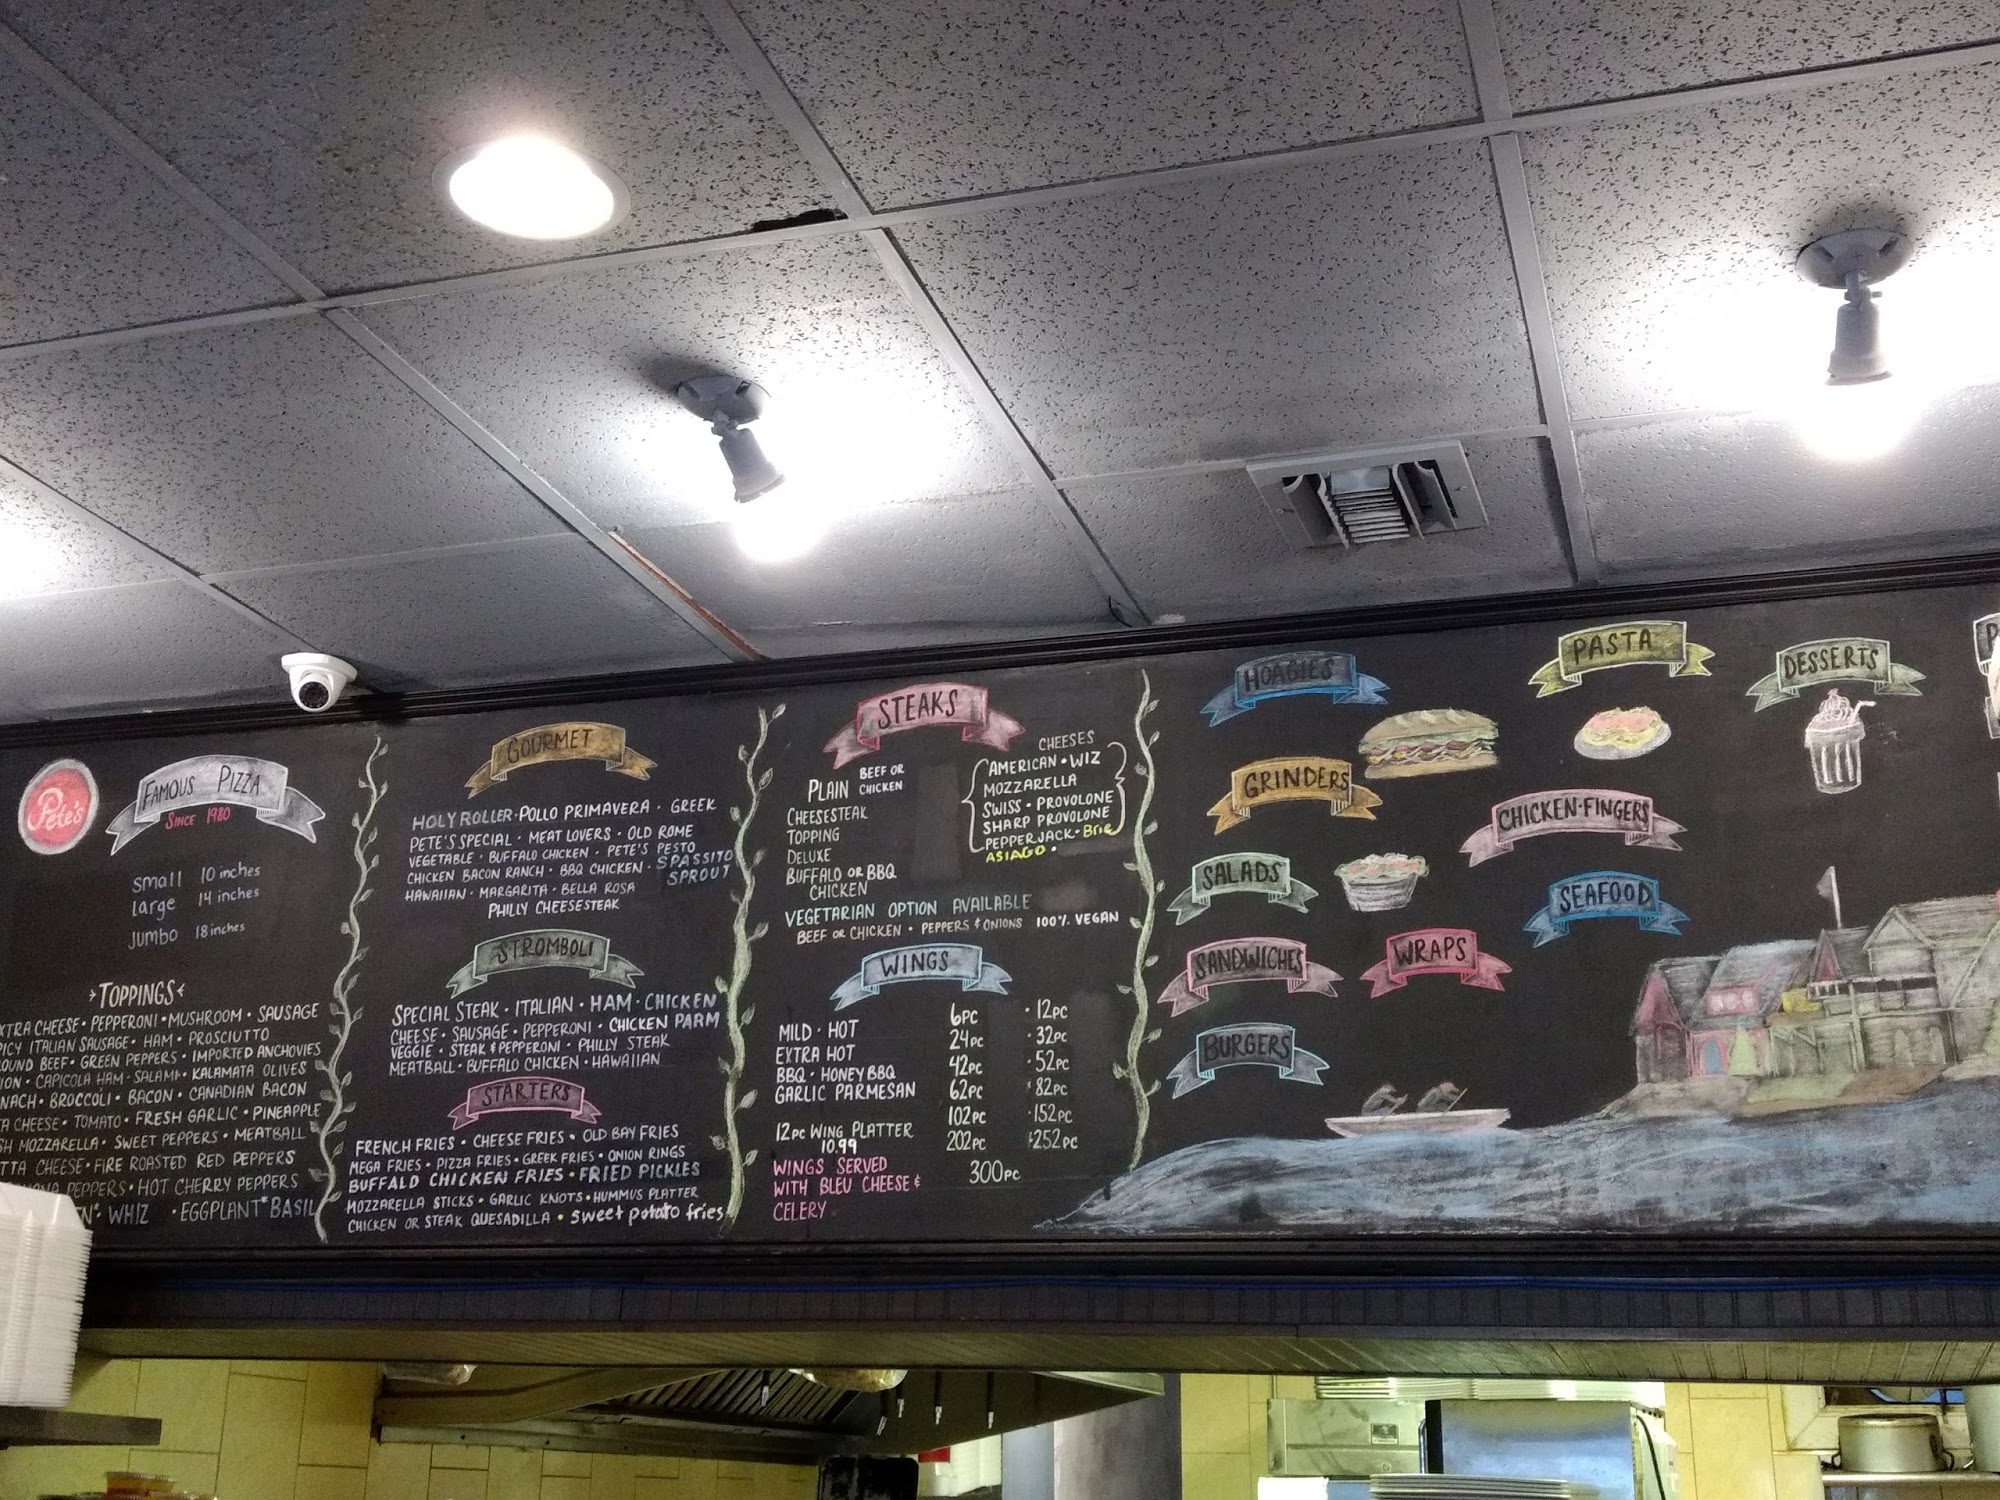 Pete's
FAMOUS PIZZA
SINCE 1980
small 10 inches
large 14 inches
jumbo 18 inches
TOPPINGS
EXTRA CHEESE • PEPPERONI • MUSHROOM • SAUSAGE
ITALIAN SAUSAGE • HAM • PROSCIUTTO
BEEF • GREEN PEPPERS • IMPORTED ANCHOVIES
CAPICOLA HAM • SALAMI • KALAMATA OLIVES
BROCCOLI • BACON • CANADIAN BACON
CHEESE • TOMATO • FRESH GARLIC • PINEAPPLE
MOZZARELLA • SWEET PEPPERS • MEATBALL
CHEESE • FIRE ROASTED RED PEPPERS
PEPPERS • HOT CHERRY PEPPERS
WHIZ • EGGPLANT * BASIL
GOURMET
HOLY ROLLER • POLLO PRIMAVERA • GREEK
PETE'S SPECIAL • MEAT LOVERS • OLD ROME
VEGETABLE • BUFFALO CHICKEN • PETE'S PESTO
CHICKEN BACON RANCH • BBQ CHICKEN • SPASSITO
HAWAIIAN • MARGARITA • BELLA ROSA SPROUT
PHILLY CHEESESTEAK
STROMBOLI
SPECIAL STEAK • ITALIAN • HAM • CHICKEN
CHEESE • SAUSAGE • PEPPERONI • CHICKEN PARM
VEGGIE • STEAK & PEPPERONI • PHILLY STEAK
MEATBALL • BUFFALO CHICKEN • HAWAIIAN
STARTERS
FRENCH FRIES • CHEESE FRIES • OLD BAY FRIES
MEGA FRIES • PIZZA FRIES • GREEK FRIES • ONION RINGS
BUFFALO CHICKEN FRIES • FRIED PICKLES
MOZZARELLA STICKS • GARLIC KNOTS • HUMMUS PLATTER
CHICKEN OR STEAK QUESADILLA • sweet potato fries
STEAKS
PLAIN BEEF OR CHICKEN
CHEESESTEAK
TOPPING
DELUXE
BUFFALO OR BBQ
CHICKEN
CHEESES
AMERICAN • WIZ
MOZZARELLA
SWISS • PROVOLONE
SHARP PROVOLONE
PEPPERJACK • Brie
ASIAGO •
VEGETARIAN OPTION AVAILABLE
BEEF OR CHICKEN • PEPPERS & ONIONS 100% VEGAN
WINGS
MILD • HOT
EXTRA HOT
BBQ • HONEY BBQ
GARLIC PARMESAN
12PC WING PLATTER
10.99
WINGS SERVED
WITH BLEU CHEESE &
CELERY
6PC • 12PC
24PC • 32PC
42PC • 52PC
62PC • 82PC
102PC • 152PC
202PC • 252PC
300PC
HOAGIES
GRINDERS
SALADS
SANDWICHES
WRAPS
BURGERS
PASTA
CHICKEN • FINGERS
SEAFOOD
DESSERTS